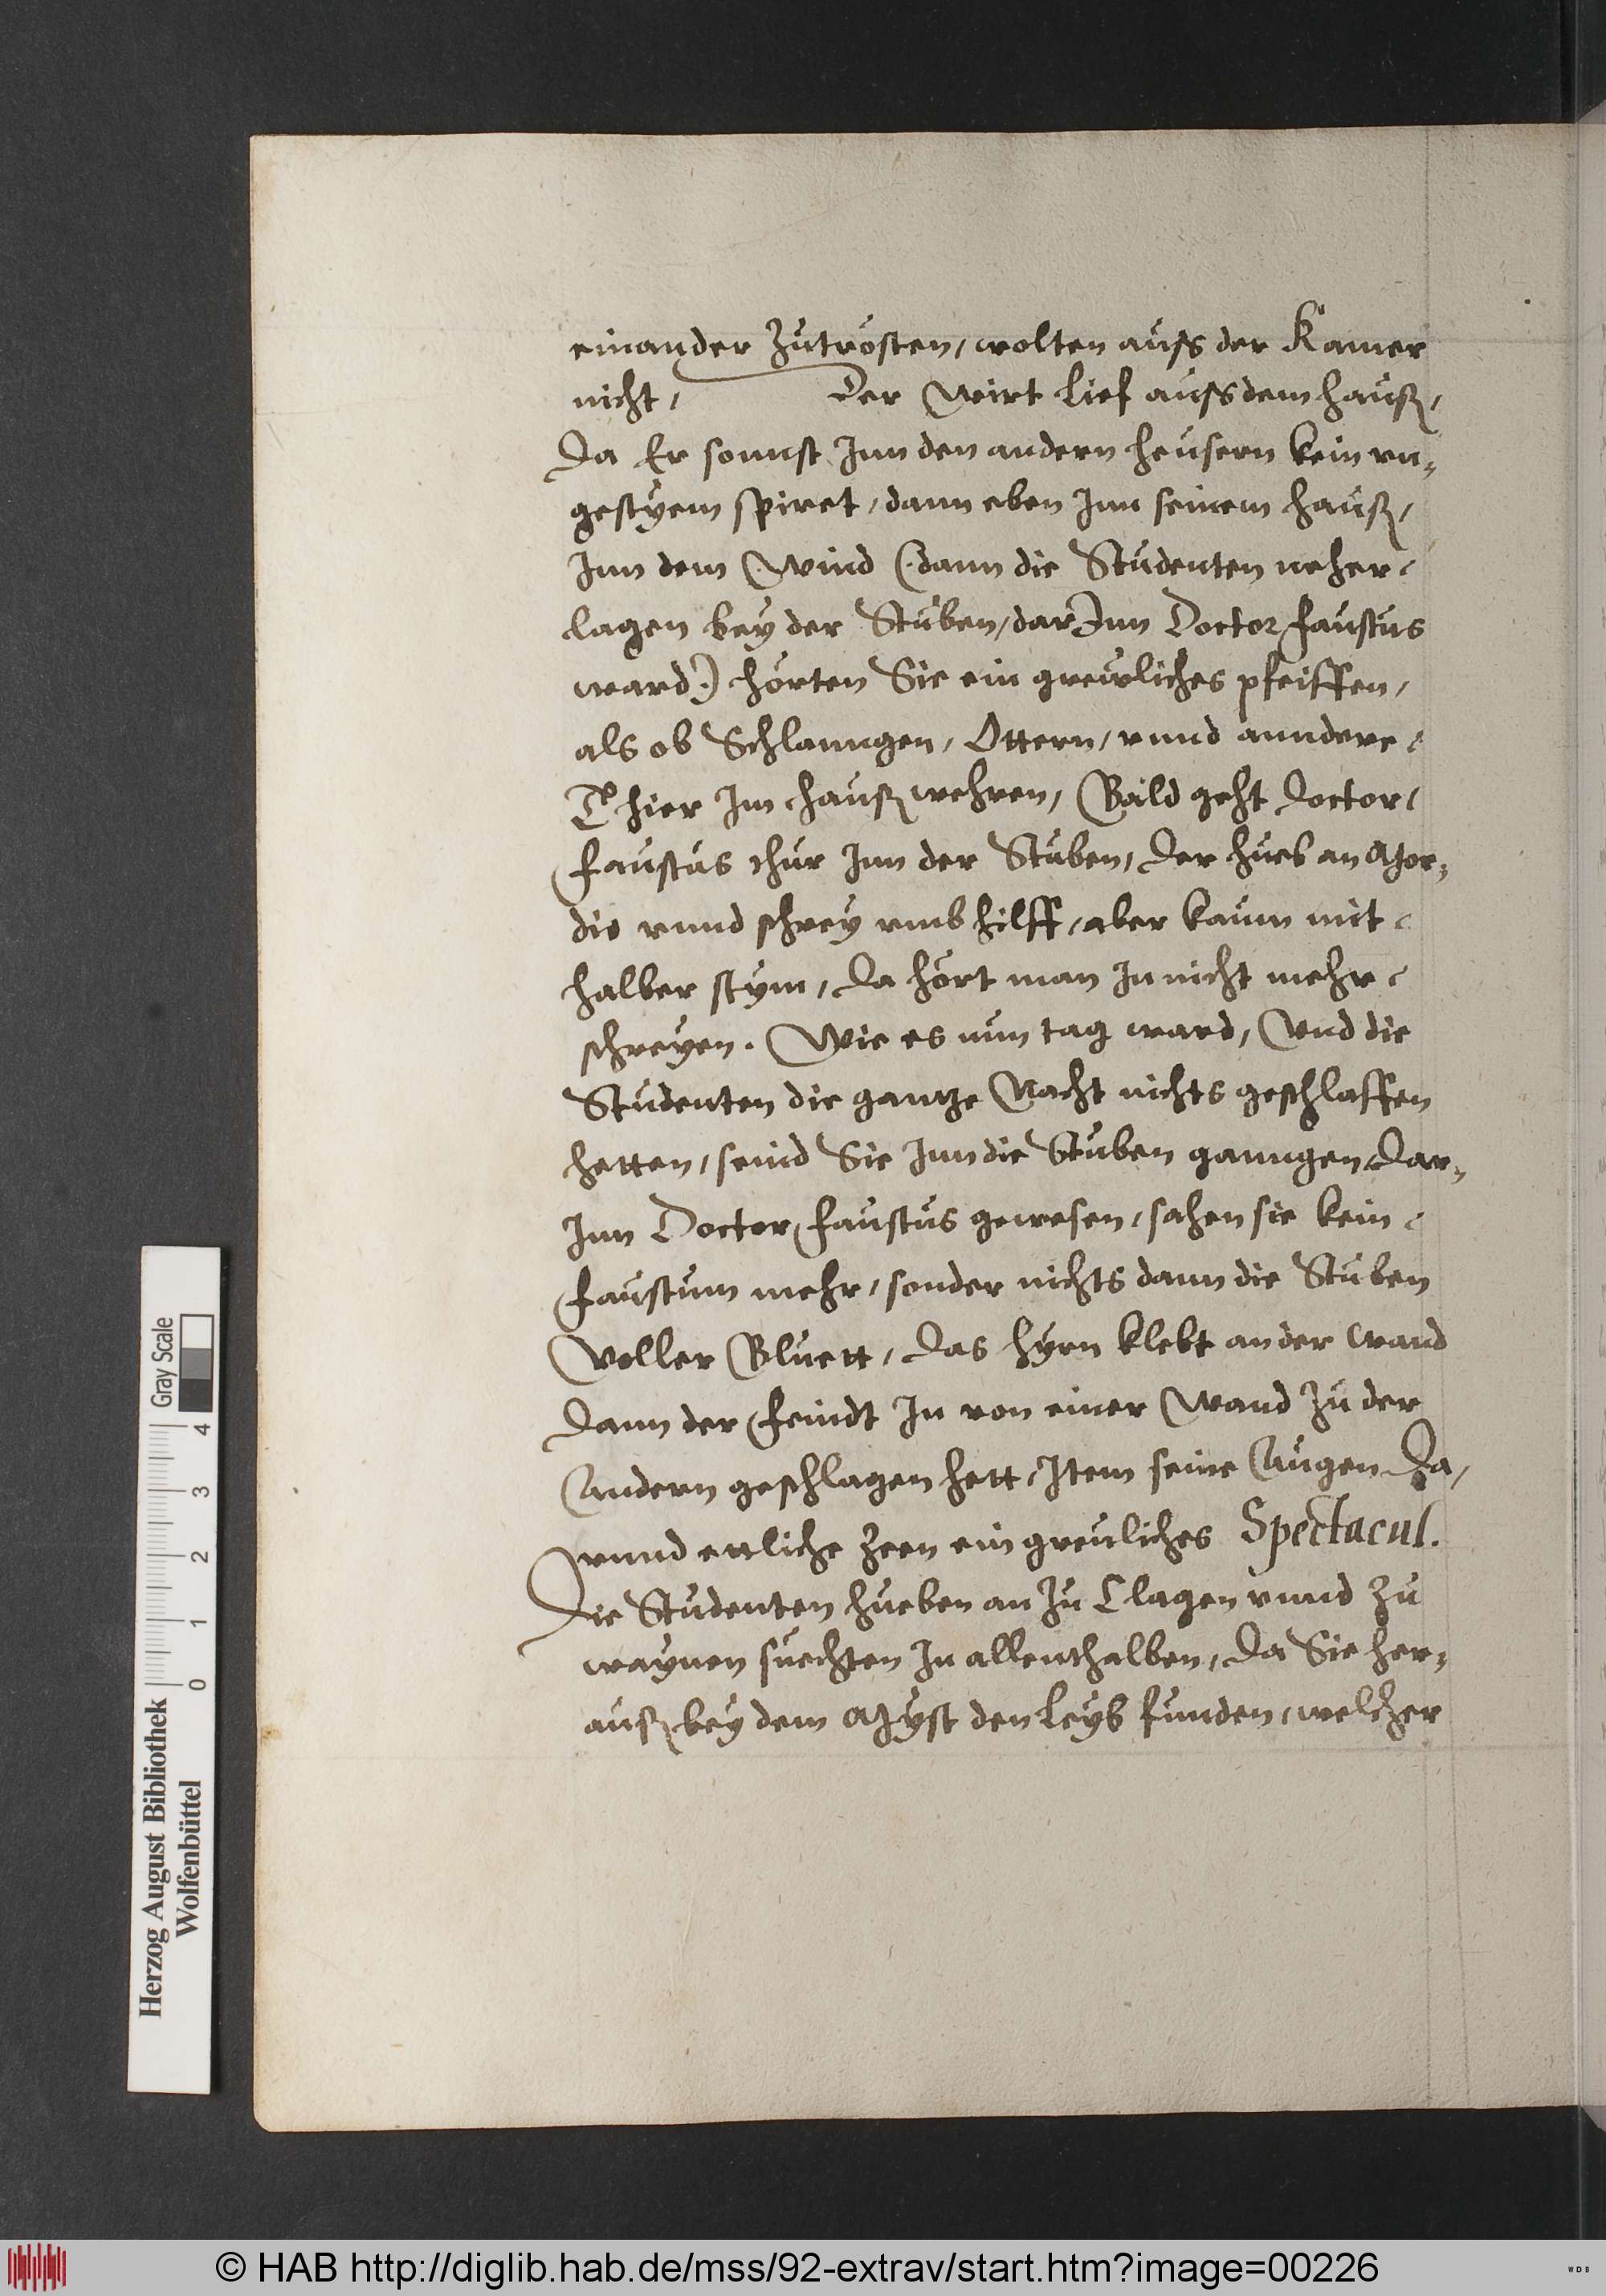 einander Zutrösten, wolten auss der Kamer
nicht, Der Wirt lief auss dem hauß,
Da Er sonnst Inn den andern heusern kein vn-
gestyem spiret, dann eben Inn seinem hauß,
Inn dem Wind (dann die Studenten neher
lagen bey der Stuben, darInn Doctor Faustus
ward) hörten Sie ein grewliches pfeiffen,
als ob Schlanngen, Ottern, vnnd anndere
Thier Im hauß wehren, Bald geht Doctor
Faustus thür Inn der Stuben, Der hueb an Mor-
dio vnnd schrey vmb hilff, aber kaum mit
halber stym, Da hört man In nicht mehr
schreyen. Wie es nun tag ward, Vnd die
Studenten die gantze Nacht nichts geschlaffen
hetten, seind Sie Inn die Stuben ganngen, Dar-
Inn Doctor Faustus gewesen, sahen sie kein
Faustum mehr, sonder nichts dann die Stuben
Voller Bluett, Das hyrn klebt an der Wand
Dann der Feindt In von einer Wand Zu der
Andern geschlagen hett, Item seine Augen Da,
vnnd ettliche Zeen ein greuliches Spectacul.
Die Studenten hueben an Zu Clagen vnnd Zu
waynen suechten In allenthalben, Da Sie her-
auß bey dem Myst den Leyb funden, welcher
Herzog August Bibliothek
Wolfenbüttel
0 1 2 3 4
Gray Scale
© HAB http://diglib.hab.de/mss/92-extrav/start.htm?image=00226
WDB